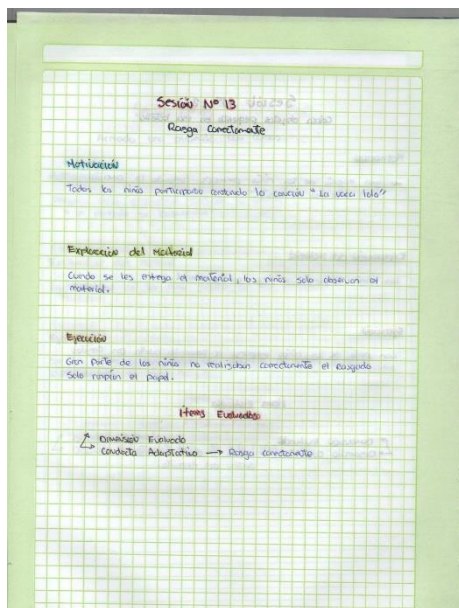 Sesión Nº 13
Rasga Correctamente
Motivación
Todos los niños participaron cantando la canción "La vaca lola"
Exploración del Material
Cuando se les entrega el material, los niños solo observan el
material.
Ejecución
Gran parte de los niños no realizaban correctamente el rasgado
solo rompían el papel.
Items Evaluados
Dimensión Evaluado
Conducta Adaptativa → Rasga correctamente